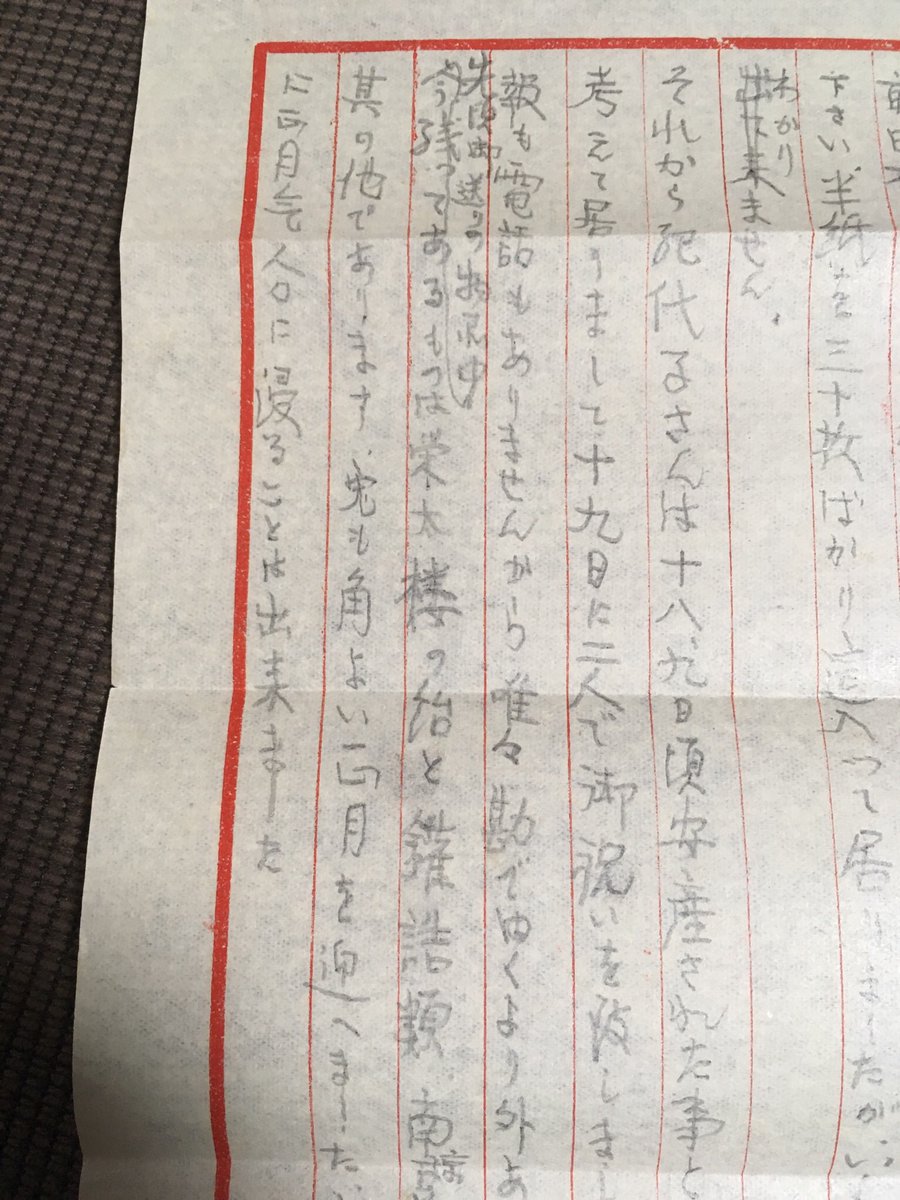 下さい半紙を三十枚ばかり這入って居りましたが
わかり
出来ません
それから紀代子さんは十八、九日頃安産された事と
考えて居りまして十九日に二人で御祝いを致しまし
報も電話もありませんから唯々勘で由くより外
先般御送りの
今残ってあるものは栄太楼の飴と鑵詰類、南京
其の他であります、兎も角よい正月を迎へました
に正月気分に浸ることは出来ました